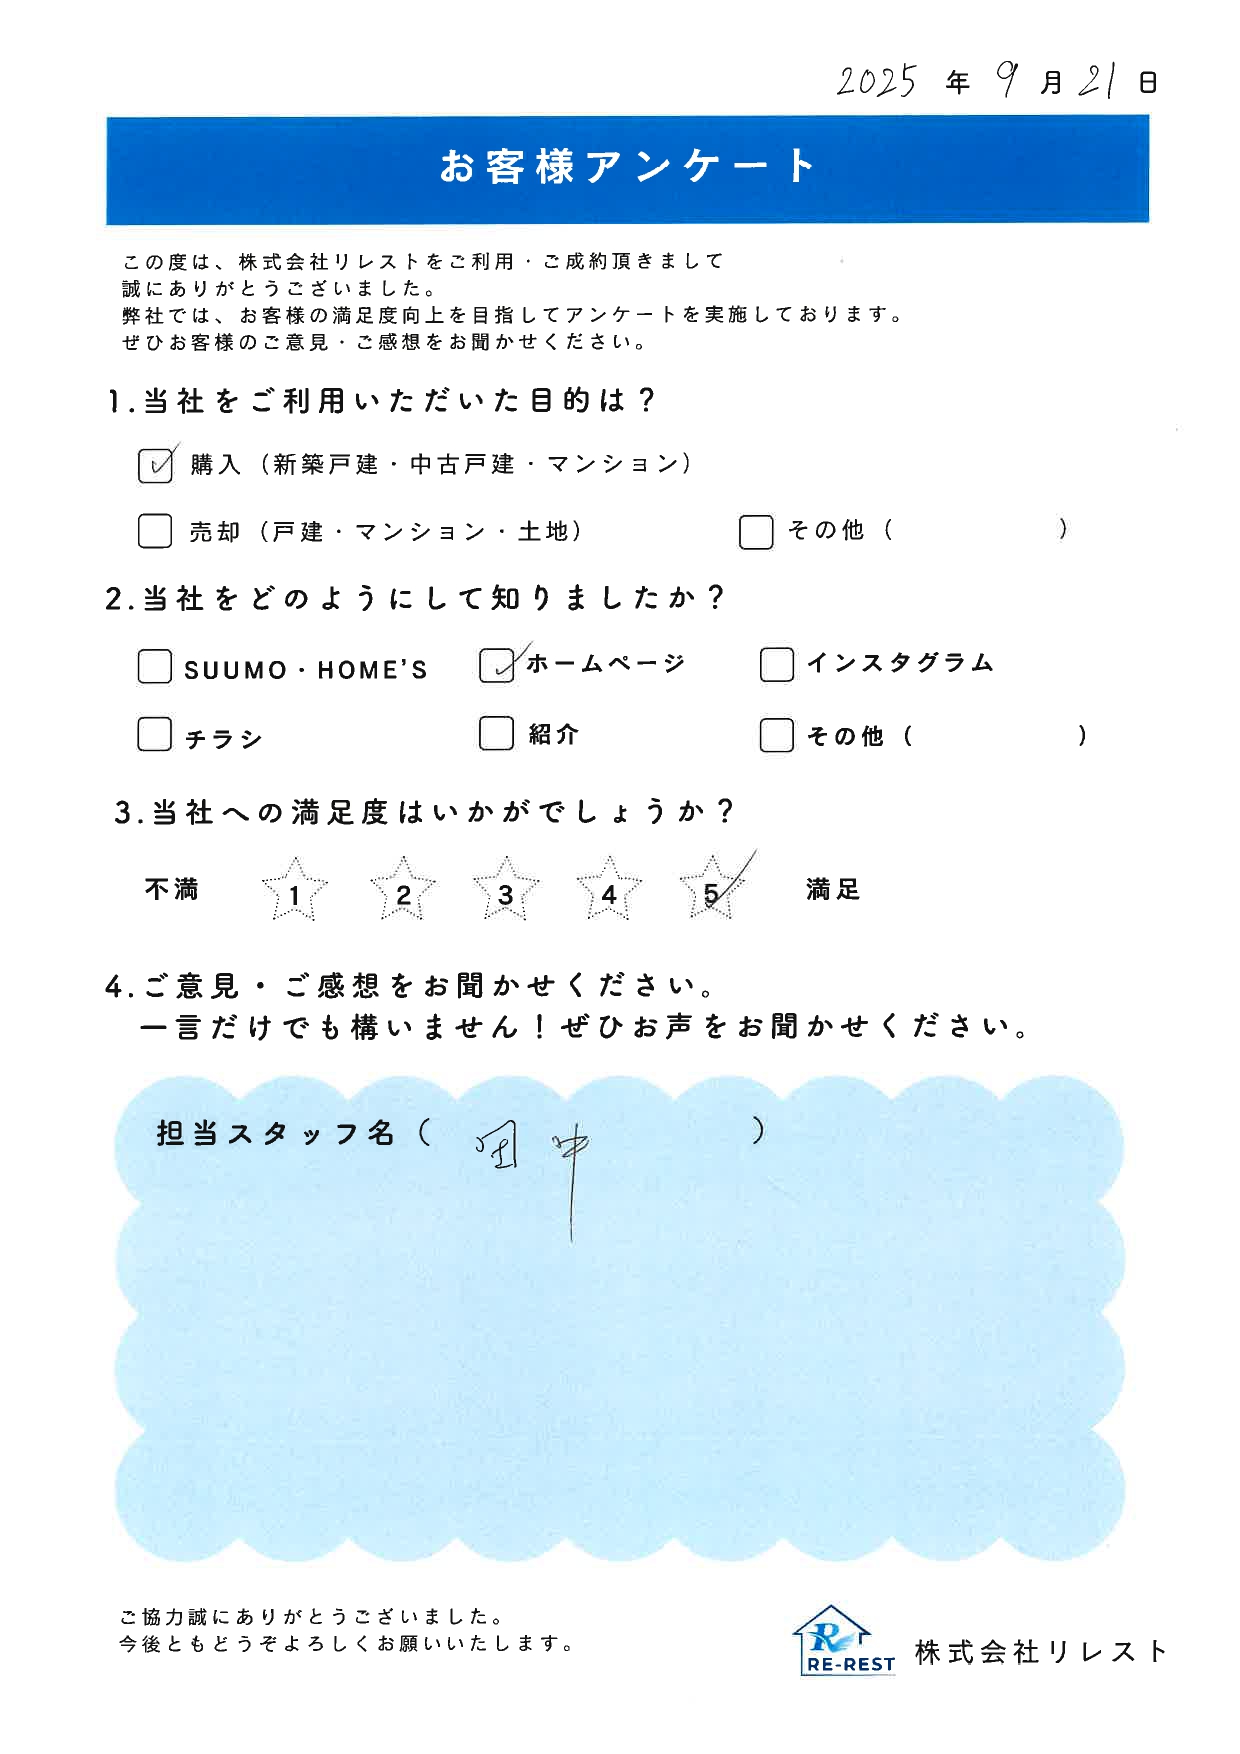 2025 年 9 月 21 日
お客様アンケート
この度は、株式会社リレストをご利用・ご成約頂きまして
誠にありがとうございました。
弊社では、お客様の満足度向上を目指してアンケートを実施しております。
ぜひお客様のご意見・ご感想をお聞かせください。
1.当社をご利用いただいた目的は？
購入（新築戸建・中古戸建・マンション）
売却（戸建・マンション・土地） その他（ ）
2.当社をどのようにして知りましたか？
SUUMO・HOME'S ホームページ インスタグラム
チラシ 紹介 その他（ ）
3.当社への満足度はいかがでしょうか？
不満 1 2 3 4 5 満足
4.ご意見・ご感想をお聞かせください。
一言だけでも構いません！ぜひお声をお聞かせください。
担当スタッフ名（ 田中 ）
ご協力誠にありがとうございました。
今後ともどうぞよろしくお願いいたします。
RE-REST 株式会社リレスト